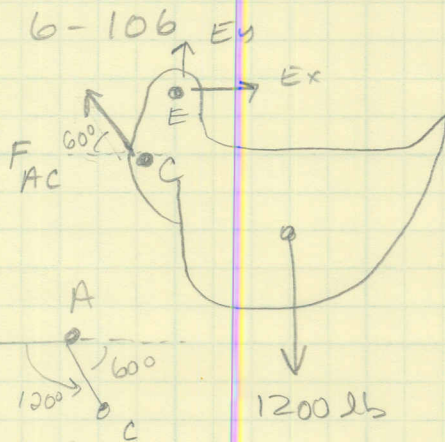 6-106
Ey
Ex
E
60°
F AC
C
A
120°
60°
C
1200 lb